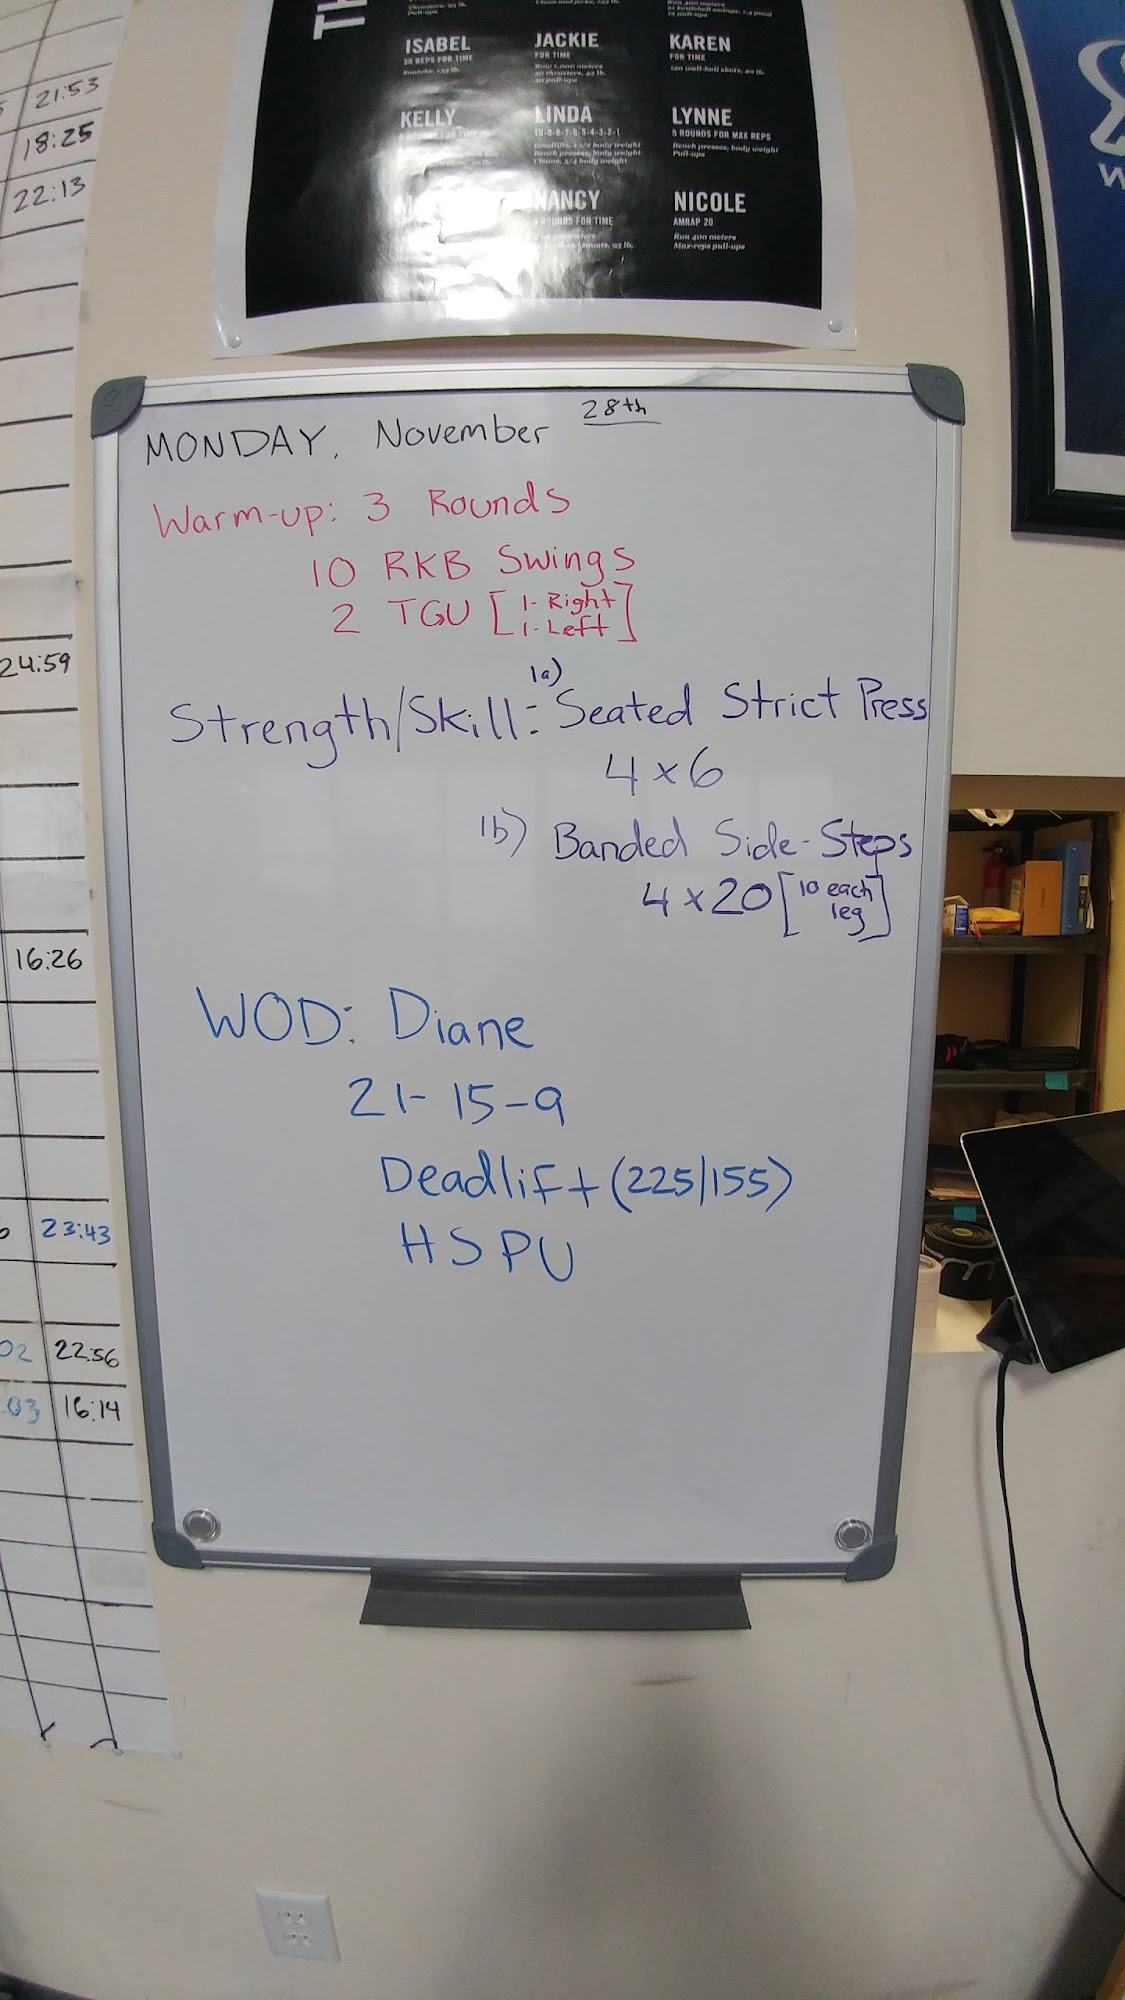 TH
ISABEL
30 REPS FOR TIME
JACKIE
FOR TIME
Row 1,000 meters
50 thrusters, 45 lb.
30 pull-ups
KAREN
FOR TIME
150 wall-ball shots, 20 lb.
KELLY
LINDA
10-9-8-7-6-5-4-3-2-1
Bench presses, body weight
Cleans, 3/4 body weight
LYNNE
5 ROUNDS FOR MAX REPS
Bench presses, body weight
Pull-ups
NANCY
ROUNDS FOR TIME
NICOLE
AMRAP 20
Run 400 meters
Max-reps pull-ups
21:53
18:25
22:13
24:59
16:26
23:43
02 22:56
03 16:14
MONDAY, November 28th
Warm-up: 3 Rounds
10 RKB Swings
2 TGU [1- Right
1- Left]
Strength/Skill: 1a) Seated Strict Press
4 x 6
1b) Banded Side-Steps
4 x 20 [10 each
leg]
WOD: Diane
21-15-9
Deadlift (225/155)
HSPU